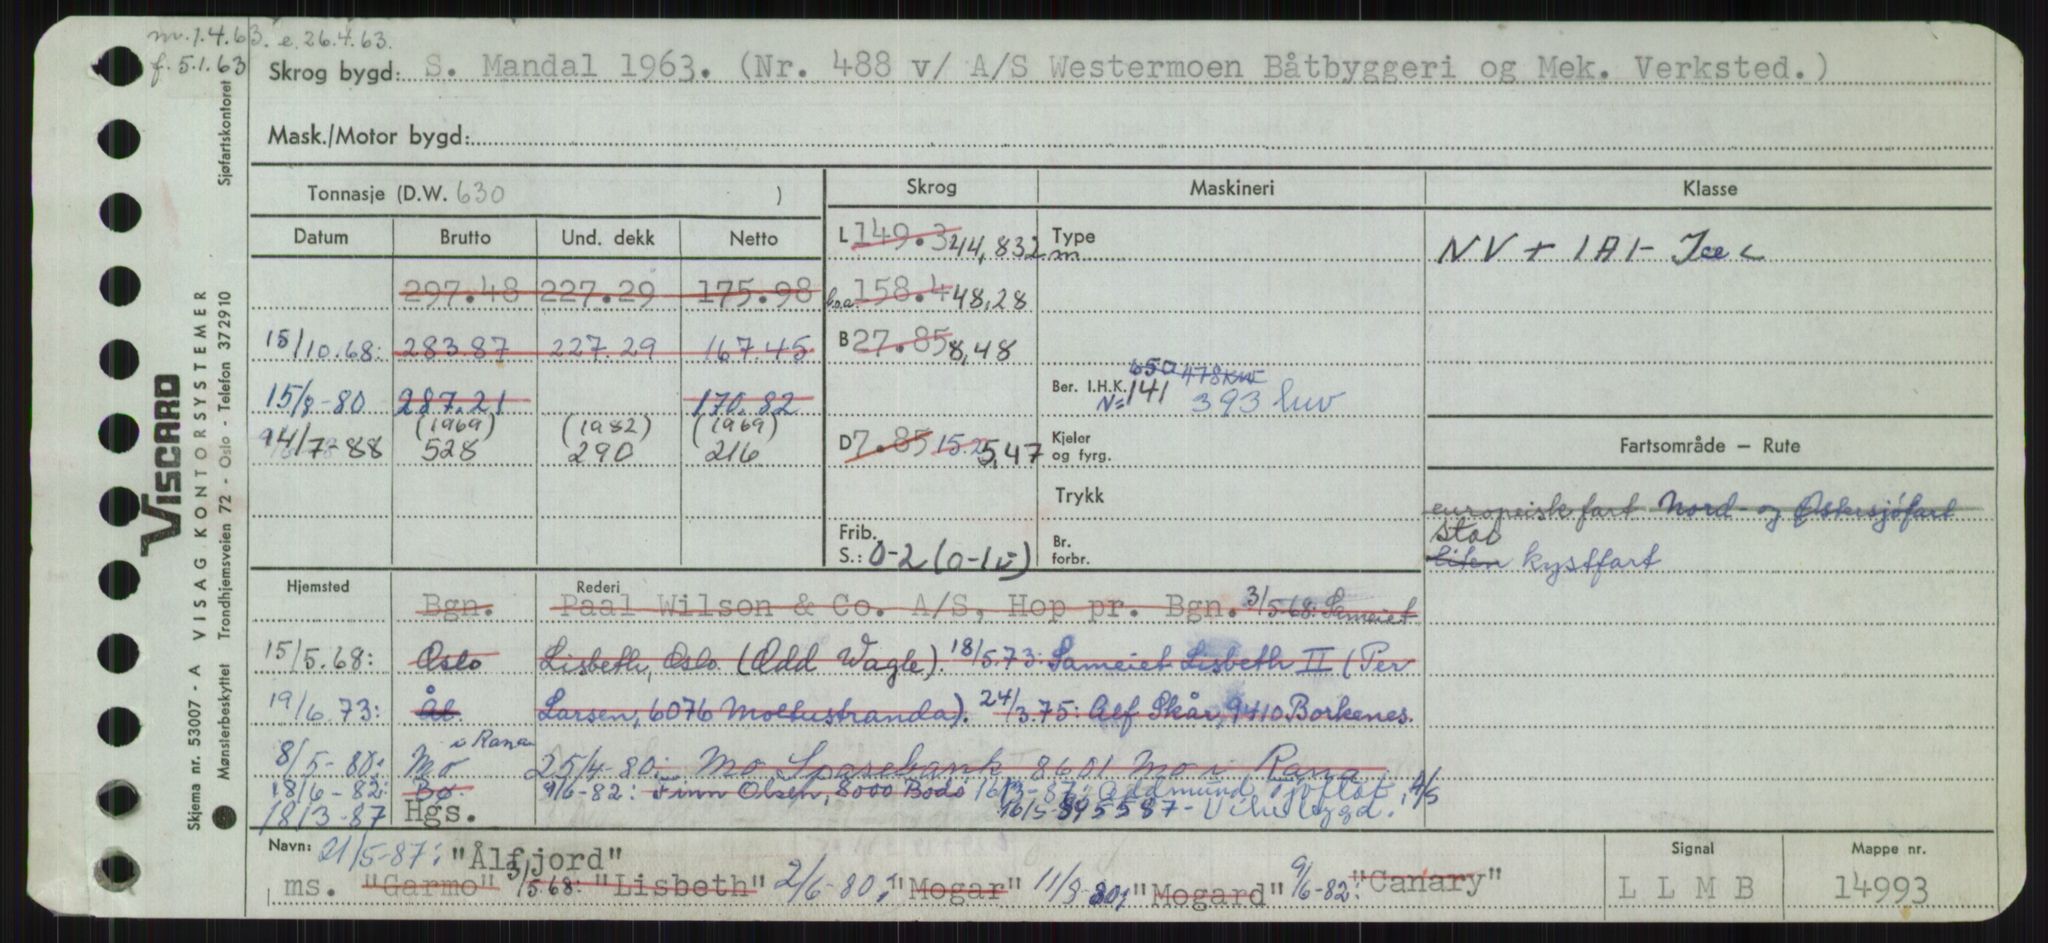 m. 1.4.63. e. 26.4.63.
f. 5.1.63
Skrog bygd: S. Mandal 1963. (Nr. 488 v/ A/S Westermoen Båtbyggeri og Mek. Verksted.)
Mask./Motor bygd:
Tonnasje (D.W. 630 )
Skrog Maskineri Klasse
Datum Brutto Und. dekk Netto
L 149.3 44,832 m Type
NV + 1A1- Ice C
297.48 227.29 175.98
l.o.a. 158.4 48,28
15/10.68: 283.87 227.29 167.45
B 27.85 8,48
15/8-80 287.21 170.82
Ber. I.H.K. 650 478KW
N= 141 393 luv
(1969) (1982) (1969)
14/7-88 528 290 216
D 7.85 15.2 5,47
Kjeler og fyrg.
Fartsområde — Rute
Trykk
europeisk fart Nord- og Østersjøfart
Frib.
S.: 0-2 (0-1 )
Br. forbr.
stor
liten kystfart
Hjemsted Rederi
Bgn. Paal Wilson & Co. A/S, Hop pr. Bgn. 3/5.68: Sameiet
15/5.68: Oslo Lisbeth, Oslo (Odd Wagle). 18/5.73: Sameiet Lisbeth II (Per
19/6.73: Ål. Larsen, 6076 Moltustranda). 24/3.75: Alf Skår, 9410 Borkenes.
8/5-80: Mo i Rana 25/4-80: Mo Sparebank 8601 Mo i Rana
18/6-82: Bø. 9/6-82: Finn Olsen, 8000 Bodø 16/3-87: Oddmund A/S
18/3-87 Hgs. 16/5- 5587-
Navn: 21/5-87: "Ålfjord"
ms. "Garmo" 3/5.68: "Lisbeth" 2/6-80: "Mogar" 11/8-80: "Mogard" 9/6-82: "Canary"
Signal
L L M B
Mappe nr.
14993
Skjema nr. 53007 - A VISAG KONTORSYSTEMER
VISCARD
Mønsterbeskyttet Trondhjemsveien 72 - Oslo - Telefon 372910 Sjøfartskontoret